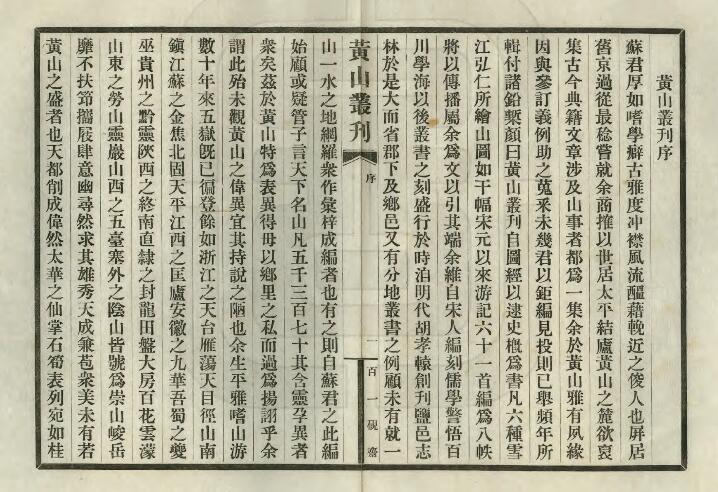 黃山叢刊序
蘇君厚如嗜學癖古雅度冲襟風流醞藉輓近之俊人也屏居
舊京過從最稔嘗就余商搉以世居太平結廬黃山之麓欲裒
集古今典籍文章涉及山事者都爲一集余於黃山雅有夙緣
因與參訂義例助之蒐釆未幾君以鉅編見投則已舉頻年所
輯付諸鉛槧顏曰黃山叢刊自圖經以逮史槪爲書凡六種雪
江弘仁所繪山圖如干幅宋元以來游記六十一首編爲八帙
將以傳播屬余爲文以引其端余維自宋人編刻儒學警悟百
川學海以後叢書之刻盛行於時洎明代胡孝轅創刊鹽邑志
林於是大而省郡下及鄉邑又有分地叢書之例顧未有就一
黃山叢刊
序
一
百一硯齋
山一水之地網羅衆作彙梓成編者也有之則自蘇君之此編
始顧或疑管子言天下名山凡五千三百七十其含靈孕異者
衆矣茲於黃山特爲表異得毋以鄉里之私而過爲揚詡乎余
謂此殆未觀黃山之偉異宜其持說之陋也余生平雅嗜山游
數十年來五嶽旣已徧登餘如浙江之天台雁蕩天目徑山南
鎭江蘇之金焦北固天平江西之匡廬安徽之九華吾蜀之夔
巫貴州之黔靈陝西之終南直隸之封龍田盤大房百花雲濛
山東之勞山靈巖山西之五臺塞外之陰山皆號爲崇山峻岳
靡不扶筇攜屐肆意幽尋然求其雄秀天成兼苞衆美未有若
黃山之盛者也天都削成偉然太華之仙掌石筍表列宛如桂